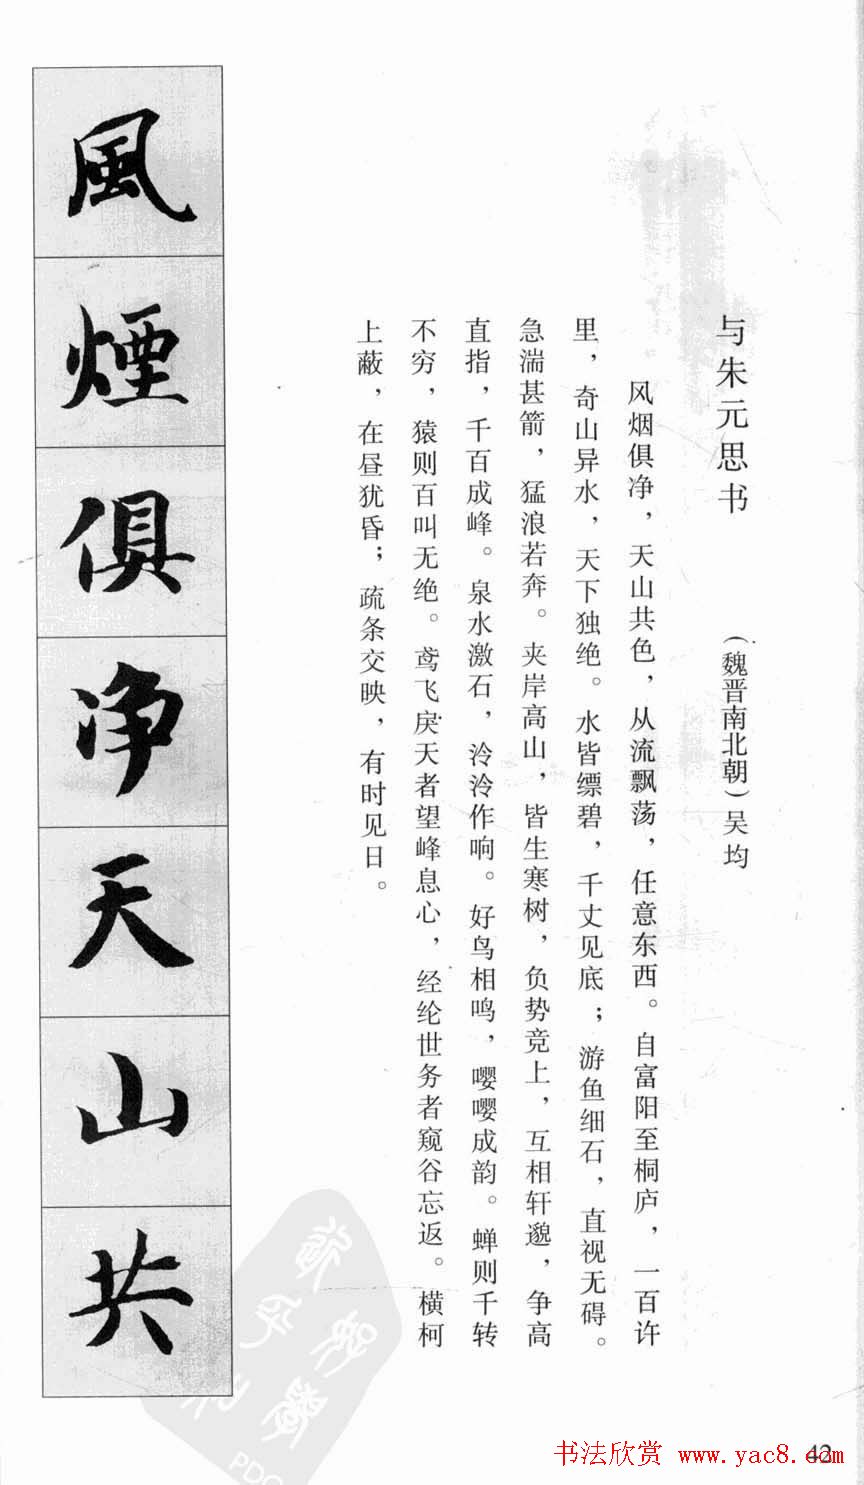 与朱元思书 （魏晋南北朝）吴均
风烟俱净，天山共色，从流飘荡，任意东西。自富阳至桐庐，一百许
里，奇山异水，天下独绝。水皆缥碧，千丈见底；游鱼细石，直视无碍。
急湍甚箭，猛浪若奔。夹岸高山，皆生寒树，负势竞上，互相轩邈，争高
直指，千百成峰。泉水激石，泠泠作响。好鸟相鸣，嘤嘤成韵。蝉则千转
不穷，猿则百叫无绝。鸢飞戾天者望峰息心，经纶世务者窥谷忘返。横柯
上蔽，在昼犹昏；疏条交映，有时见日。
風煙俱净天山共
42
书法欣赏 www.yac8.com